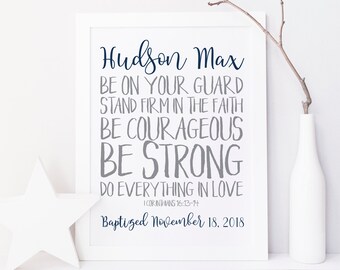 Hudson Max
BE ON YOUR GUARD
STAND FIRM IN THE FAITH
BE COURAGEOUS
BE STRONG
DO EVERYTHING IN LOVE
1 CORINTHIANS 16:13-14
Baptized November 18, 2018